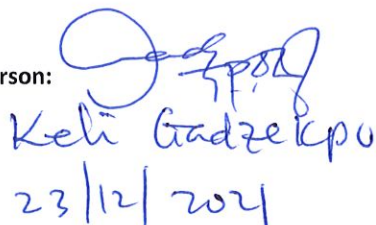 rson:
Keli Gadzekpo
23/12/2021